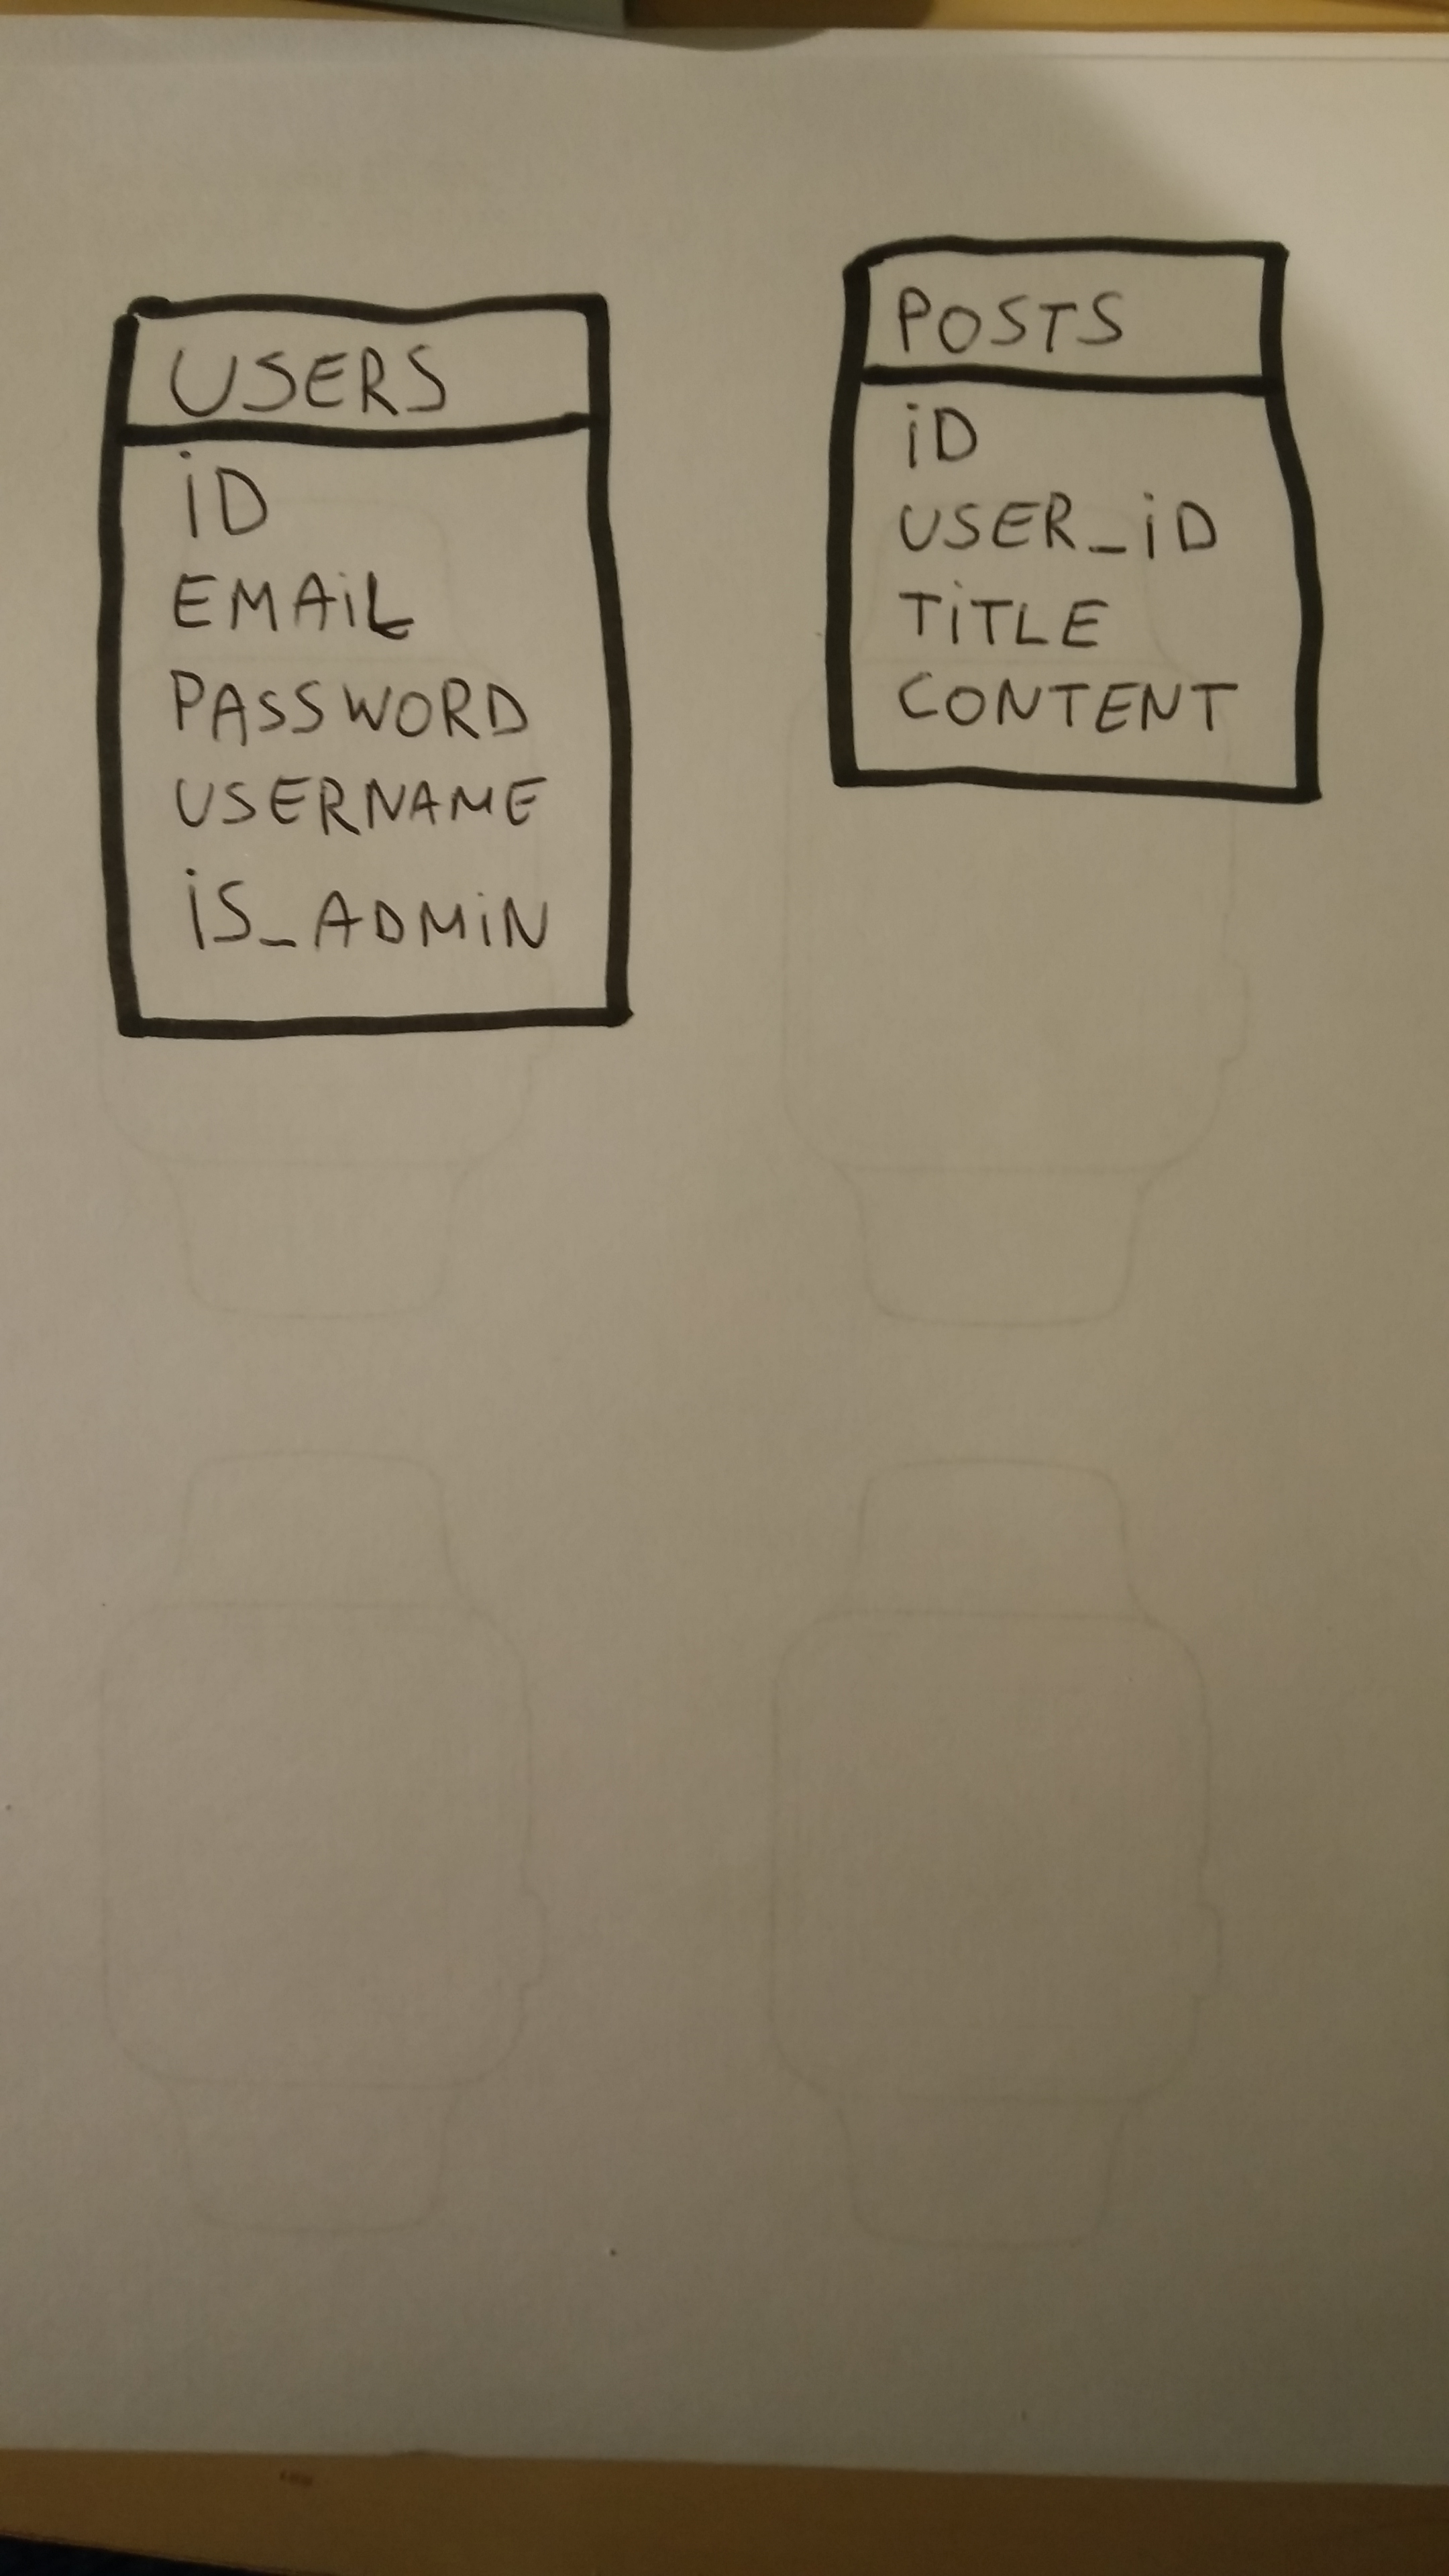 USERS
iD
EMAiL
PASSWORD
USERNAME
iS_ADMiN
POSTS
iD
USER_iD
TiTLE
CONTENT